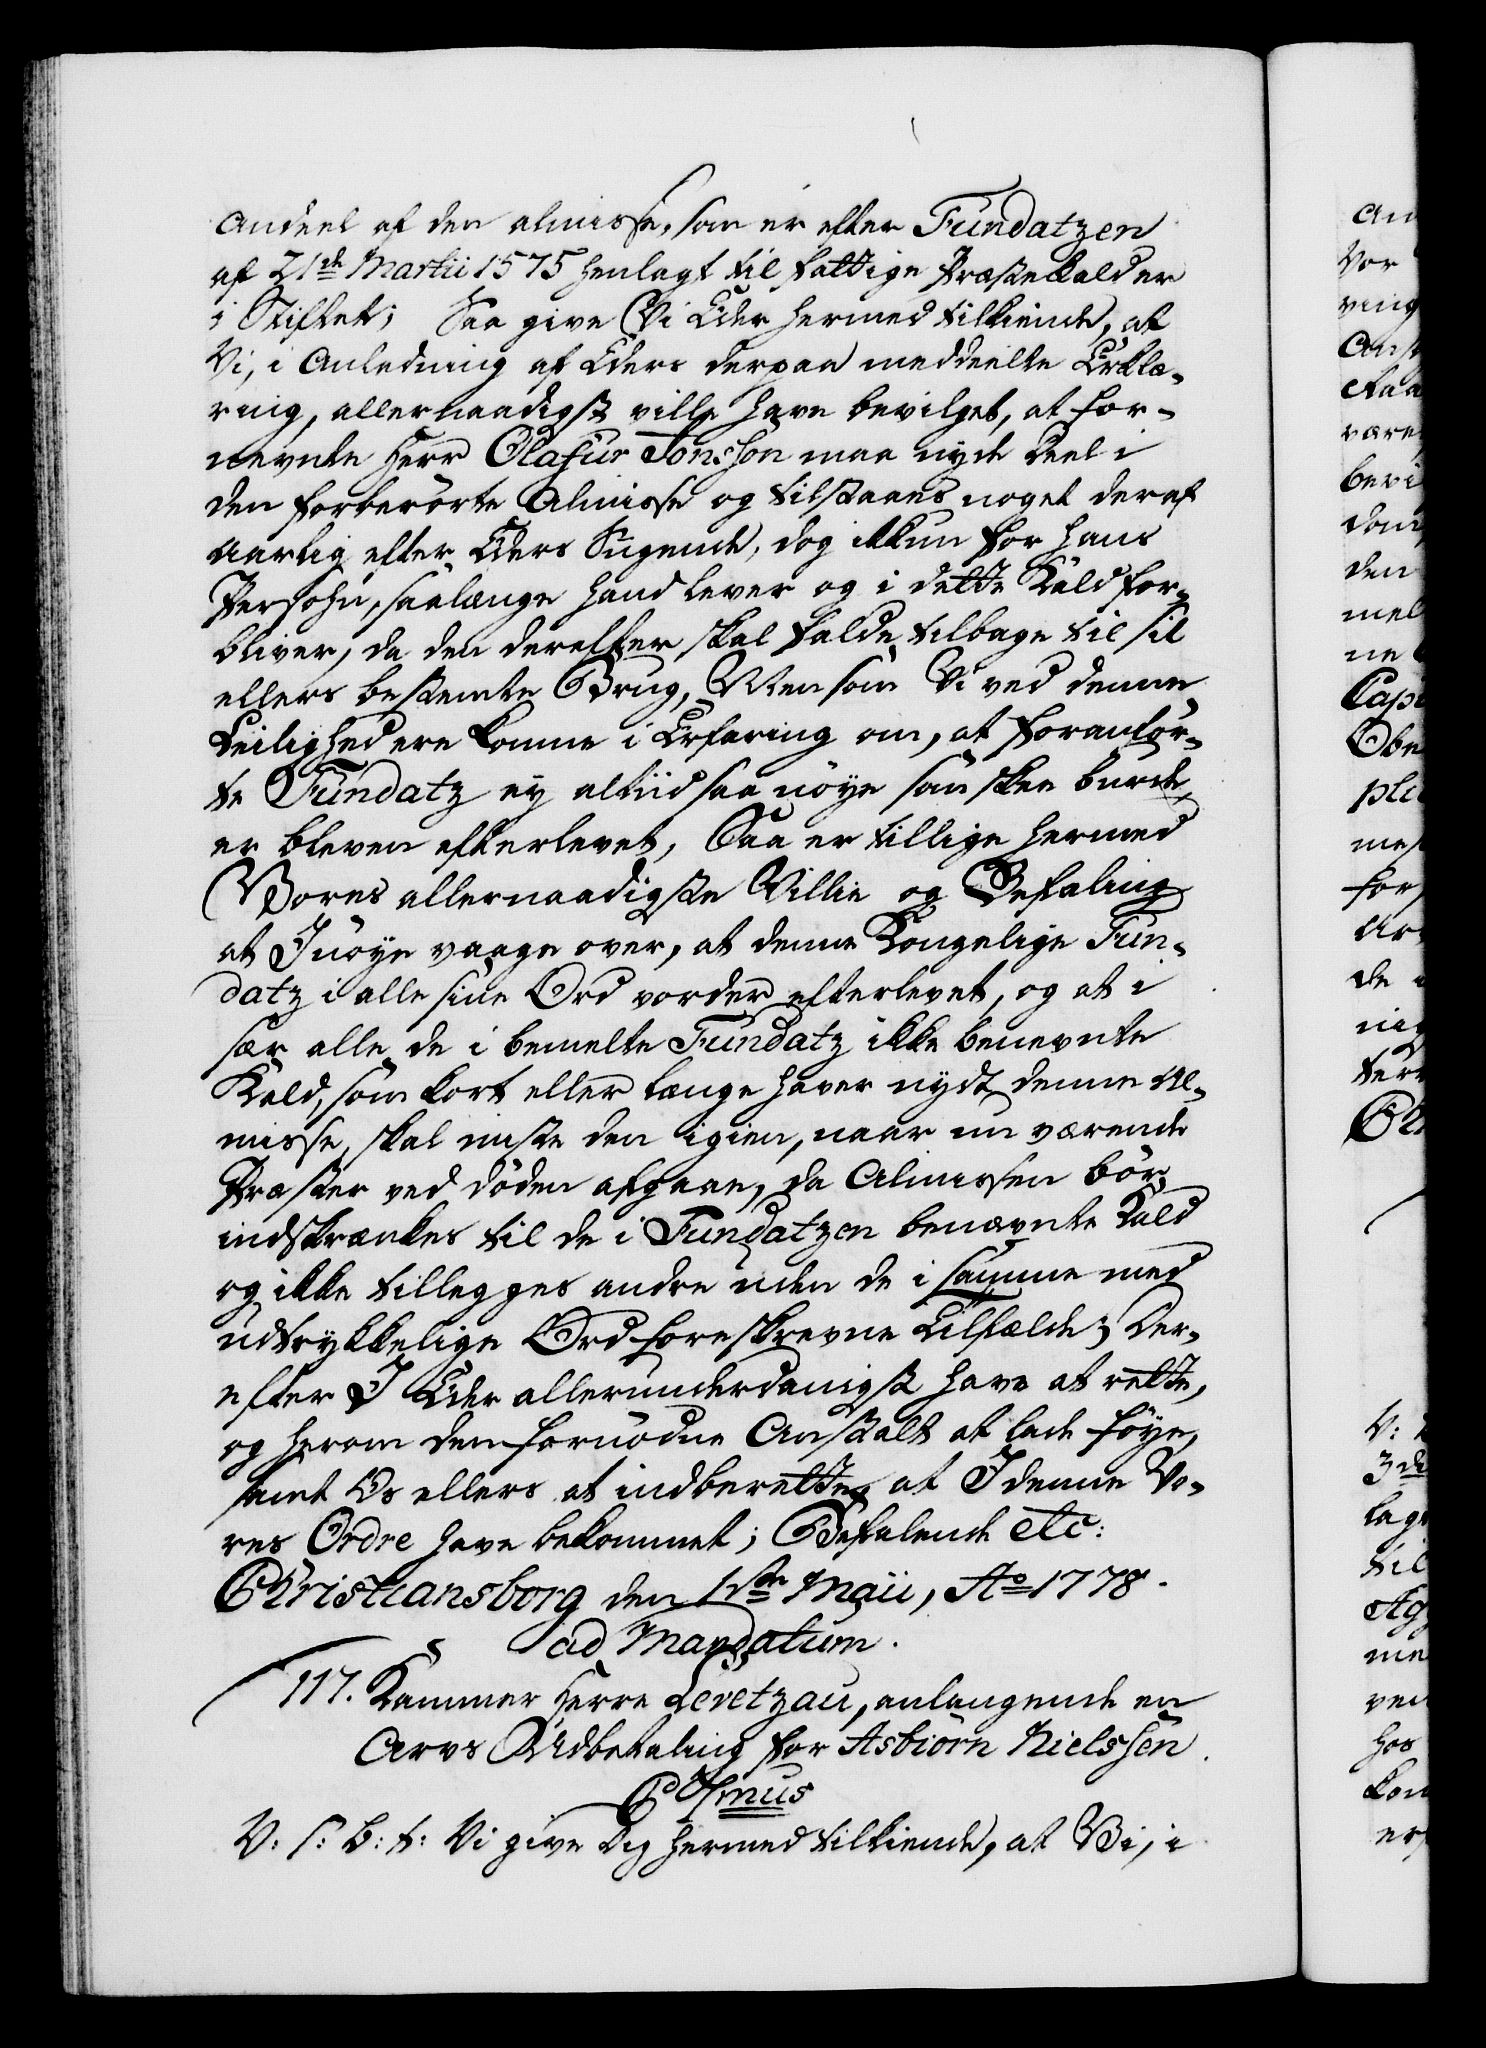 Andeel af den Almisse, som er efter Fundatzen
af 21de Martii 1575 henlagt til fattige Præstekalder
i Stiftet; Saa give Vi Eder hermed tilkiende, at
Vi, i Anledning af Eders derpaa meddeelte Erklæ-
ring, allernaadigst ville have bevilget, at for-
nevnte Herr Olafur Jonsson maa nyde Deel i
den forberörte Almisse og tilstaaes noget deraf
aarlig efter Eders Tykkende, dog ikkun for hans
Persohn, saalænge hand lever og i dette Kald for-
bliver, da den derefter skal falde tilbage til sit
ellers bestemte Brug, Men som Vi ved denne
Leilighed ere komne i Erfaring om, at foranför-
te Fundatz ey altiid saa nöye som skee burde,
er bleven efterlevet, Saa er tillige hermed
Vores allernaadigste Villie og Befaling
at I nöye vaage over, at denne Kongelige Fun-
datz i alle sine Ord vorder efterlevet, og at i
sær alle de i bemelte Fundatz ikke benevnte
Kald, som kort eller længe haver nydt denne Al-
misse, skal miste den igien, naar nu værende
Præster ved döden afgaae, da Almissen bör
indskrænkes til de i Fundatzen benævnte Kald
og ikke tillegges andre uden de i samme med
udtrykkelige Ord foreskrevne Tilfælde; Der-
efter I Eder allerunderdanigst have at rette,
og herom den fornödne Anstalt at lade föye,
samt Os ellers at indberette, at I denne Vo-
res Ordre have bekommet; Befalende etc:
Christiansborg den 1ste Maii, Ao 1778.
ad Mandatum.
117. Kammer Herre Levetzau, anlangende en
Arvs Udbetaling for Asbiörn Nielssen.
C 7mus
V: s: b: t: Vi give Dig hermed tilkiende, at Vi, i